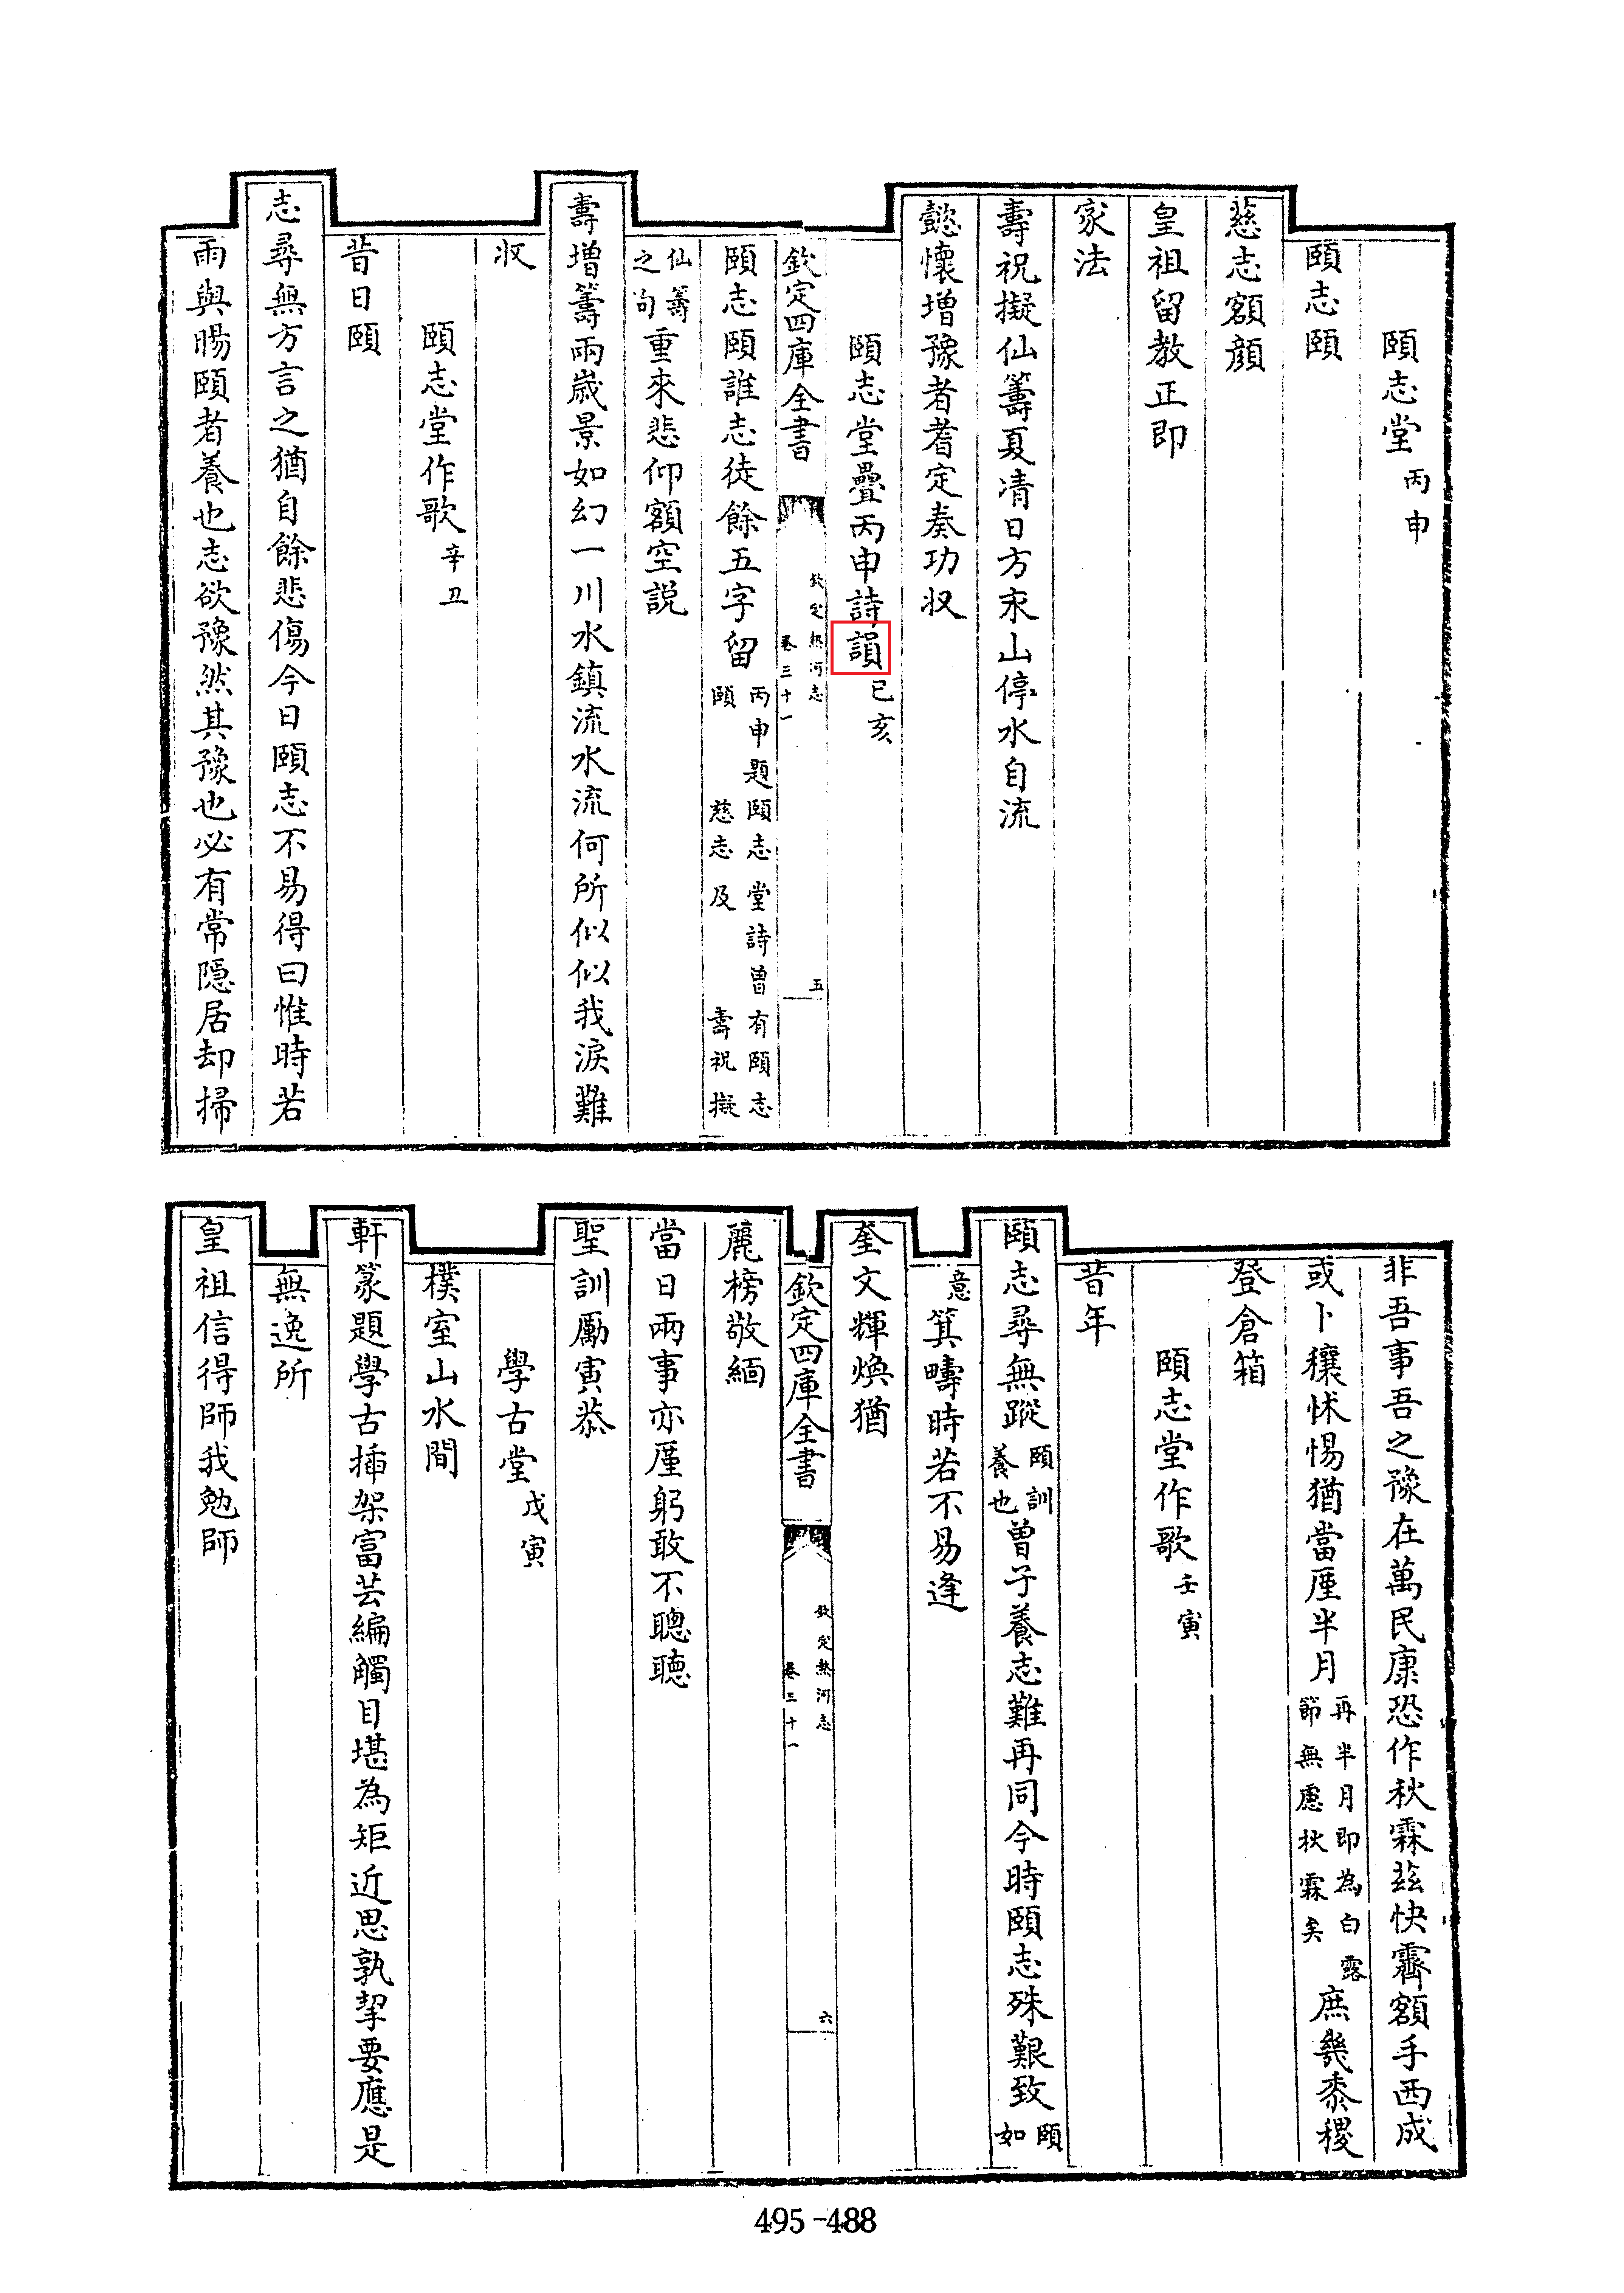 頤志堂丙申
頤志頤
慈志額顔
皇祖留教正即
家法
壽祝擬仙籌夏凊日方永山停水自流
懿懷增豫者耆定奏功収
頤志堂疊丙申詩韻己亥
欽定四庫全書
欽定熱河志
卷三十一
五
頤志頤誰志徒餘五字留丙申題頤志堂詩曾有頤志
頤慈志及壽祝擬
仙籌
之句重來悲仰額空説
壽增籌兩歳景如幻一川水鎮流水流何所似似我淚難
収
頤志堂作歌辛丑
昔日頤
志尋無方言之猶自餘悲傷今日頤志不易得曰惟時若
雨與暘頤者養也志欲豫然其豫也必有常隱居却掃
非吾事吾之豫在萬民康恐作秋霖茲快霽額手西成
或卜穰怵惕猶當厪半月再半月即為白露
節無慮秋霖矣庶幾黍稷
登倉箱
頤志堂作歌壬寅
昔年
頤志尋無蹤頤訓
養也曾子養志難再同今時頤志殊艱致頤
如
意箕疇時若不易逢
奎文輝煥猶
欽定四庫全書
欽定熱河志
卷三十一
六
麗榜敬緬
當日兩事亦厪躬敢不聰聽
聖訓勵寅恭
學古堂戊寅
樸室山水間
軒篆題學古揷架富芸編觸目堪為矩近思孰挈要應是
無逸所
皇祖信得師我勉師
495-488